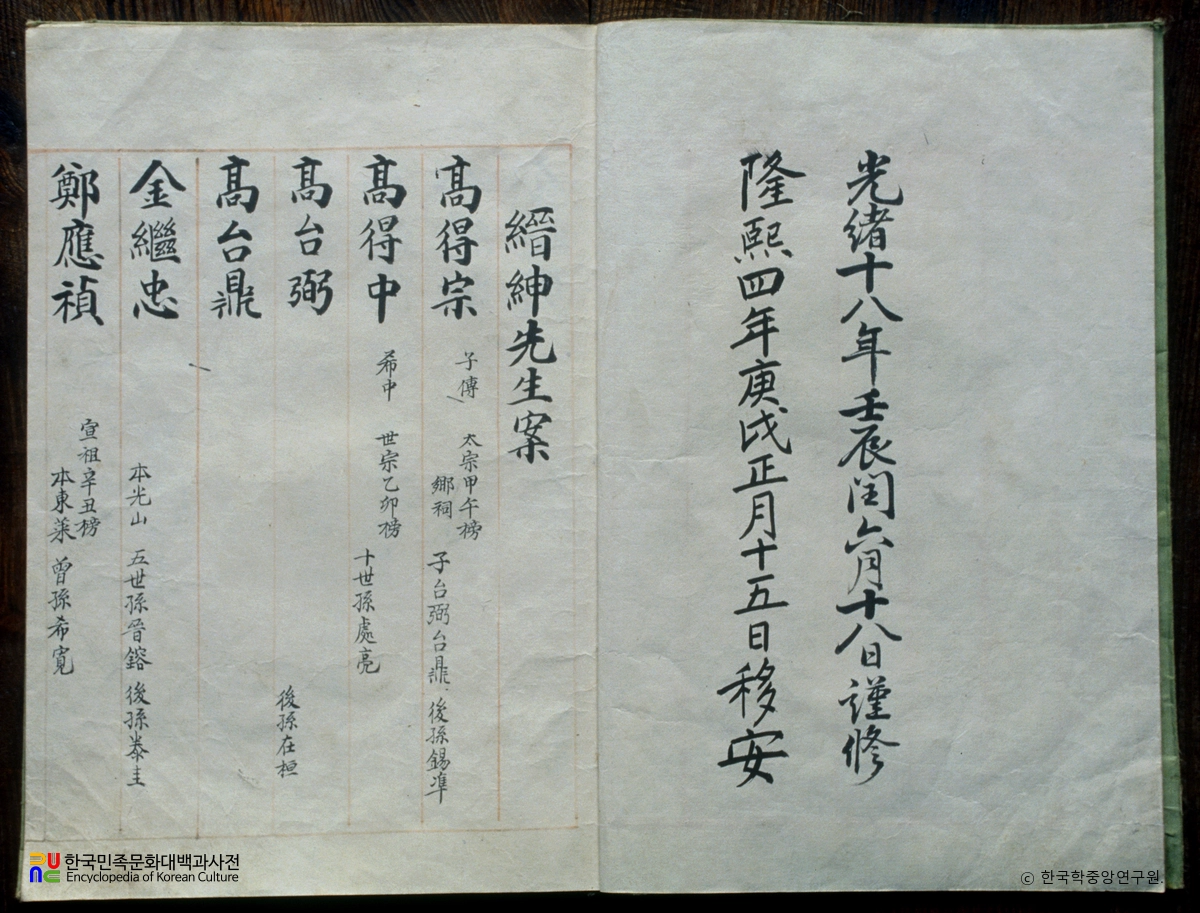 光緖十八年壬辰閏六月十八日謹修
隆熙四年庚戌正月十五日移安
縉紳先生案
高得宗 子傳 太宗甲午榜 鄕祠 子台弼台鼎 後孫錫準
高得中 希中 世宗乙卯榜 十世孫處亮
高台弼 後孫在桓
高台鼎
金繼忠 本光山 五世孫晉鎔 後孫泰圭
鄭應禎 宣祖辛丑榜 本東萊 曾孫希寬
한국민족문화대백과사전
Encyclopedia of Korean Culture
ⓒ 한국학중앙연구원